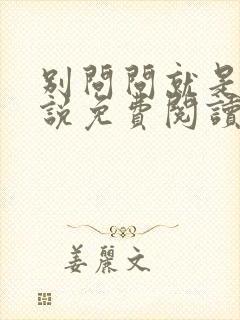 別問問就是
說免費閱讀
姜麗文